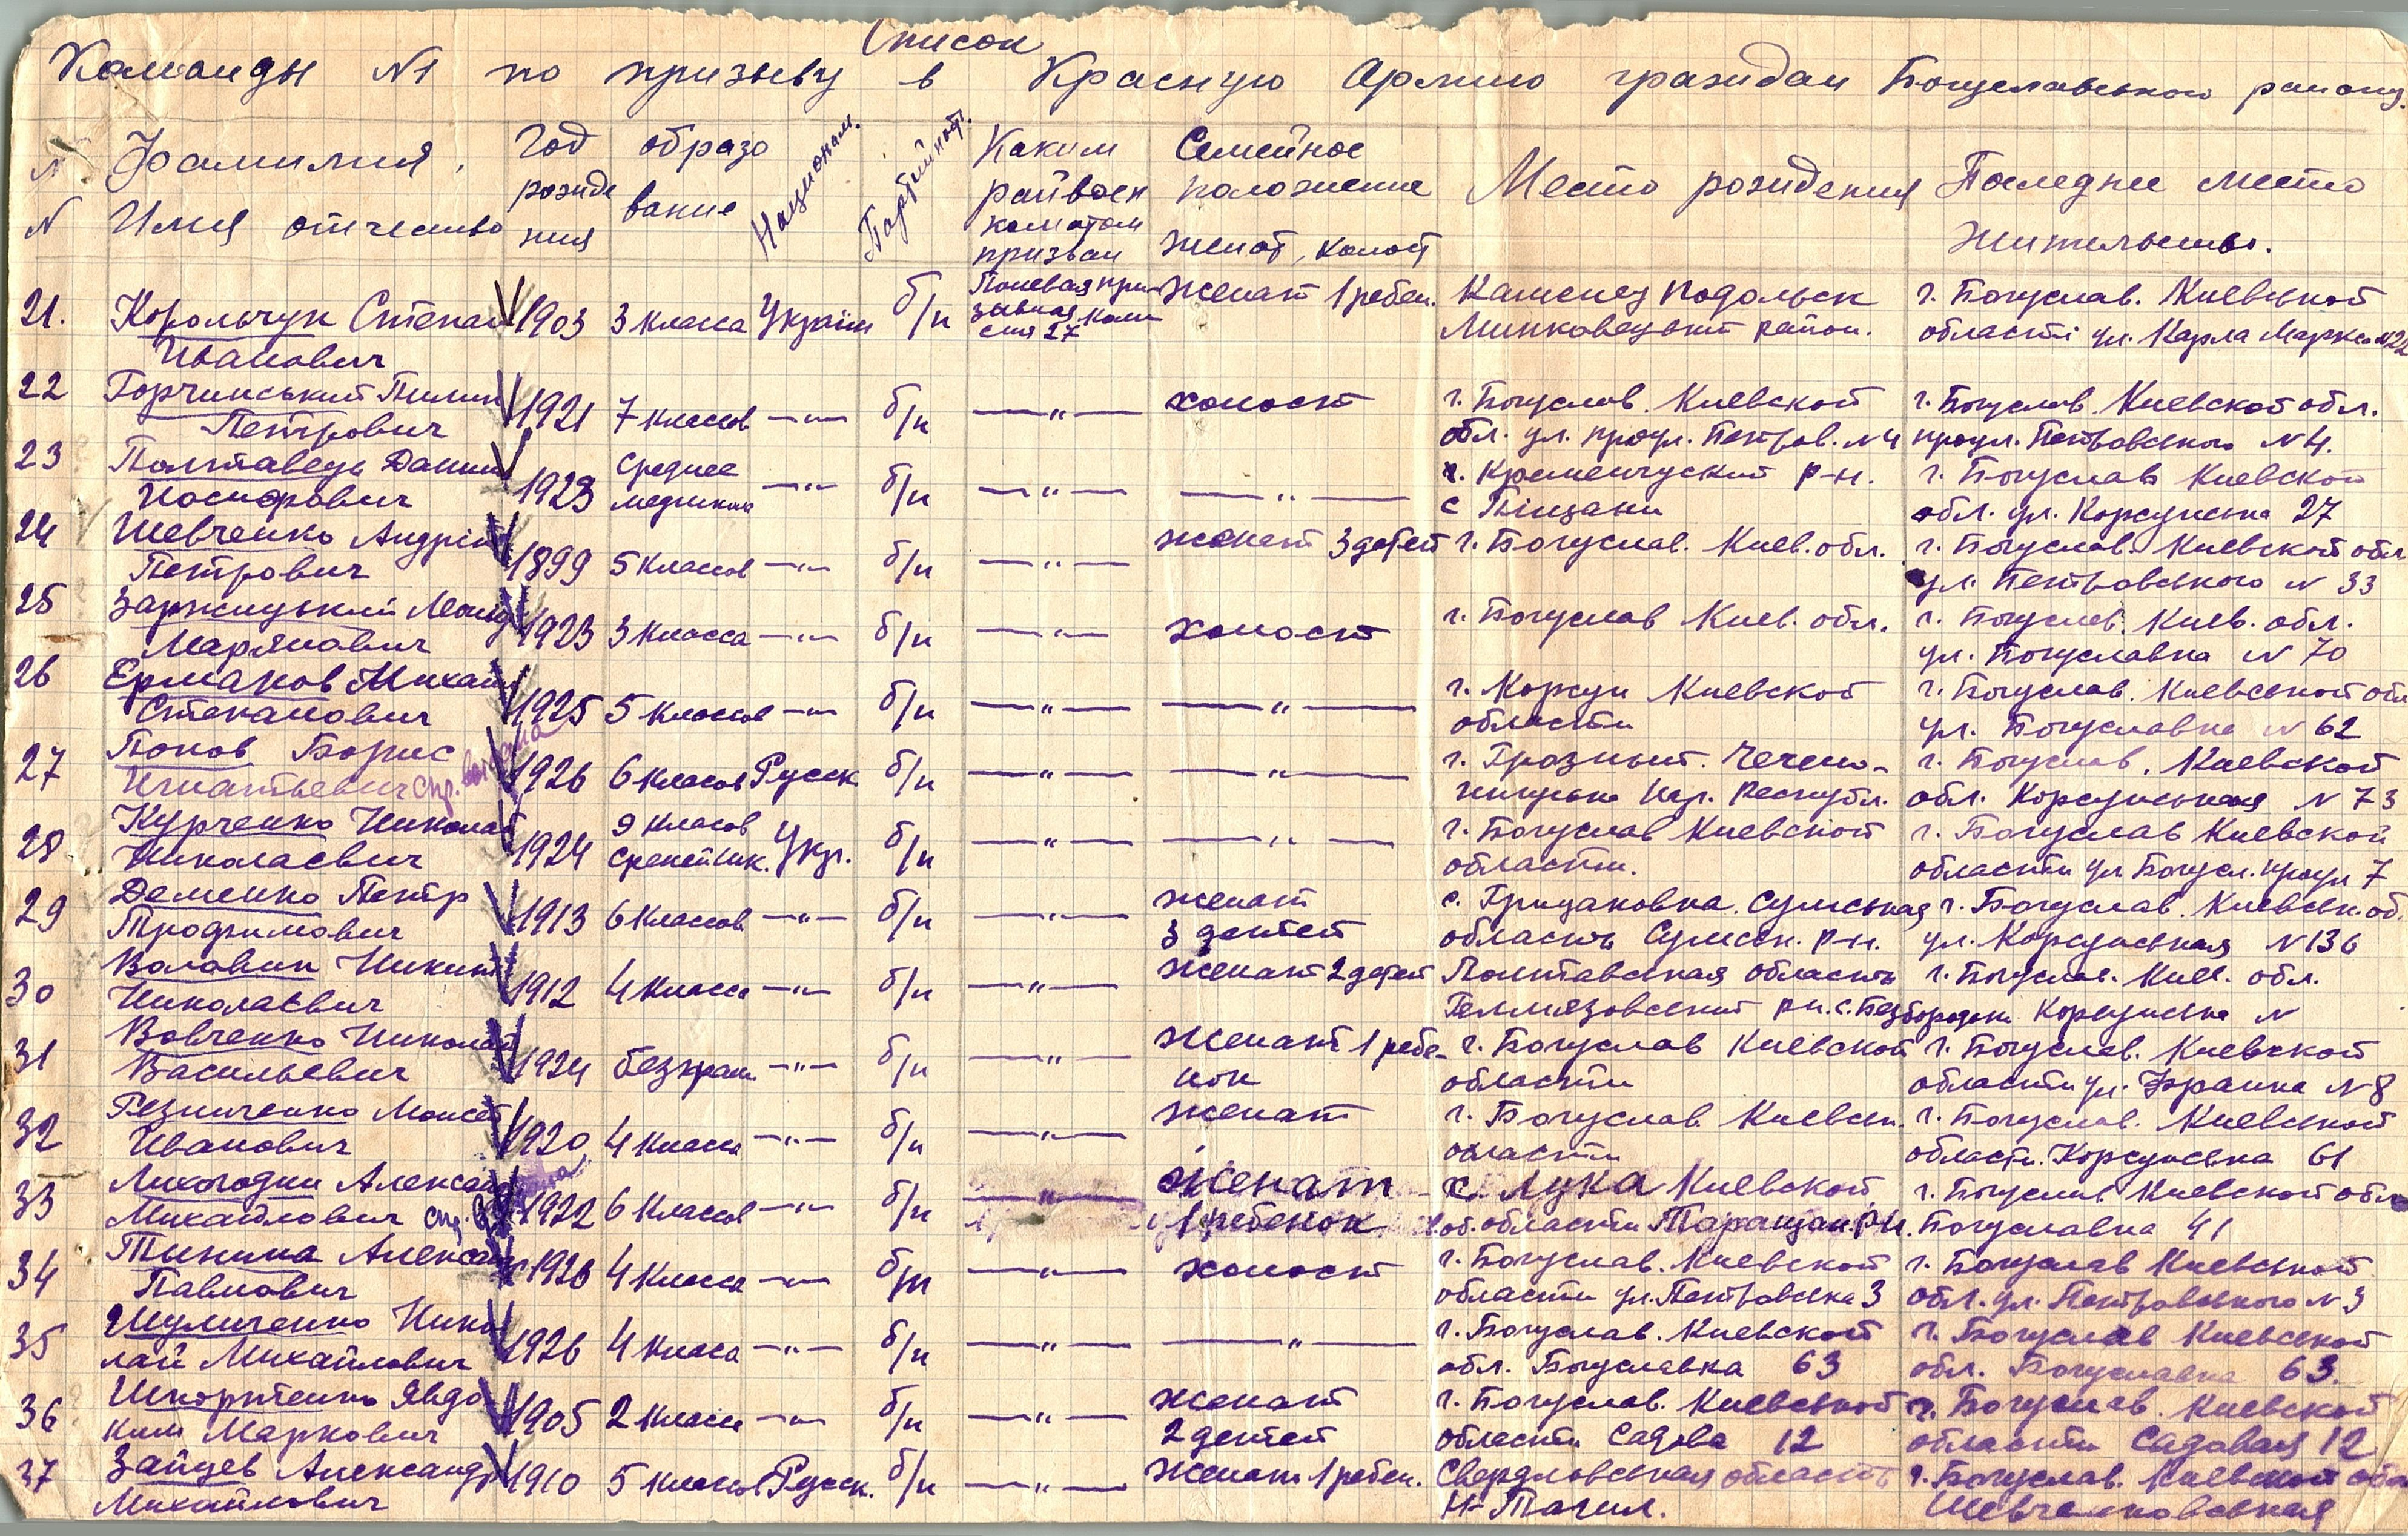 Список
Команды №1 по призыву в Красную Армию граждан Богуславського району.
N N Фамилия, Имя отчество
Год рожде ния
образо вание
Националн.
Партийност.
Каким райвоен коматом призван
Семейное положение женат, холост
Место рождения
Последнее место жительства.
21. Корольчук Степан 1903 3 класса Україн б/п Полевая при- женат 1 ребен. Каменец Подольск г. Богуслав. Киевської
Иванович зывная коми сия 27 Миньковецький район. області ул. Карла Маркса
22 Горчинський Пилип 1921 7 классов —"— б/п —"— холост г. Богуслав. Киевской г. Богуслав. Киевской обл.
Петрович обл. ул. проул. Петров. №4 проул. Петровського №4.
23 Полтавець Данил 1923 Среднее —"— б/п —"— —"— г. Кременчуский р-н. г. Богуслав Киевской
Иосифович с Піщани обл. ул. Корсунська 27
24 Шевченко Андрій 1899 5 классов —"— б/п —"— женат 3 детей г. Богуслав. Киев. обл. г. Богуслав. Киевской обл
Петрович ул. Петровського № 33
25 Заржицький 1923 3 класса —"— б/п —"— холост г. Богуслав Киев. обл. г. Богуслав. Киев. обл.
Марянович ул. Богуславка № 70
26 Ермаков Михаил 1925 5 классов —"— б/п —"— —"— г. Корсун Киевской г. Богуслав. Киевськой обл
Степанович области ул. Богуславка № 62
27 Попов Борис 1926 6 класов Русск б/п —"— —"— г. Грозный. Чечено- г. Богуслав. Киевской
Игнатьевич спр. обл. Корсунськая № 73
28 Курченко Николай 1924 9 класов Укр. б/п —"— —"— г. Богуслав Киевской г. Богуслав Киевской
Николаевич области. области ул Богусл. проул 7
29 Деменко Петр 1913 6 классов —"— б/п —"— женат с. Грицаковка. Сумськая г. Богуслав. Киевськ. об.
Трофимович 3 детей область Сумськ. р-н. ул. Корсунськая № 136
30 Воловик Никит 1912 4 класса —"— б/п —"— женат 2 детей Полтавская область г. Богуслав. Киев. обл.
Николаевич Гельмязовский р-н. с. Безбородьки Корсунська №
31 Вовченко Николай 1924 безграм —"— б/п —"— женат 1 ребе- г. Богуслав Киевской г. Богуслав. Киевской
Васильевич нок области области ул. Франка № 8
32 Резниченко Моисей 1920 4 класса —"— б/п —"— женат г. Богуслав Киевськ. г. Богуслав. Киевськой
Иванович области области. Корсунська 61
33 Лихогодин Алексан 1922 6 классов —"— б/п —"— женат с. Лука Киевской г. Богуслав Киевськой обл
Михайлович спр. 1 ребенок области Таращан. рн. Богуславка 41
34 Тикина Алексан 1926 4 класса —"— б/п —"— холост г. Богуслав. Киевской г. Богуслав Киевськой
Павлович области ул. Петровська 3 обл. ул. Петровського № 3
35 Шуличенко Нико 1926 4 класа —"— б/п —"— —"— г. Богуслав. Киевской г. Богуслав Киевской
лай Михайлович обл. Богуславка 63 обл. Богуславка 63.
36 Шкортенко Явдо 1905 2 класса —"— б/п —"— женат г. Богуслав. Киевськой г. Богуслав. Киевской
ким Маркович 2 детей области Садова 12 области Садовая 12
37 Зайцев Александр 1910 5 класов Русск. б/п —"— женат 1 ребен. Свердловськая область г. Богуслав. Киевской обл
Михайлович Н-Тагил. Шевченковськая